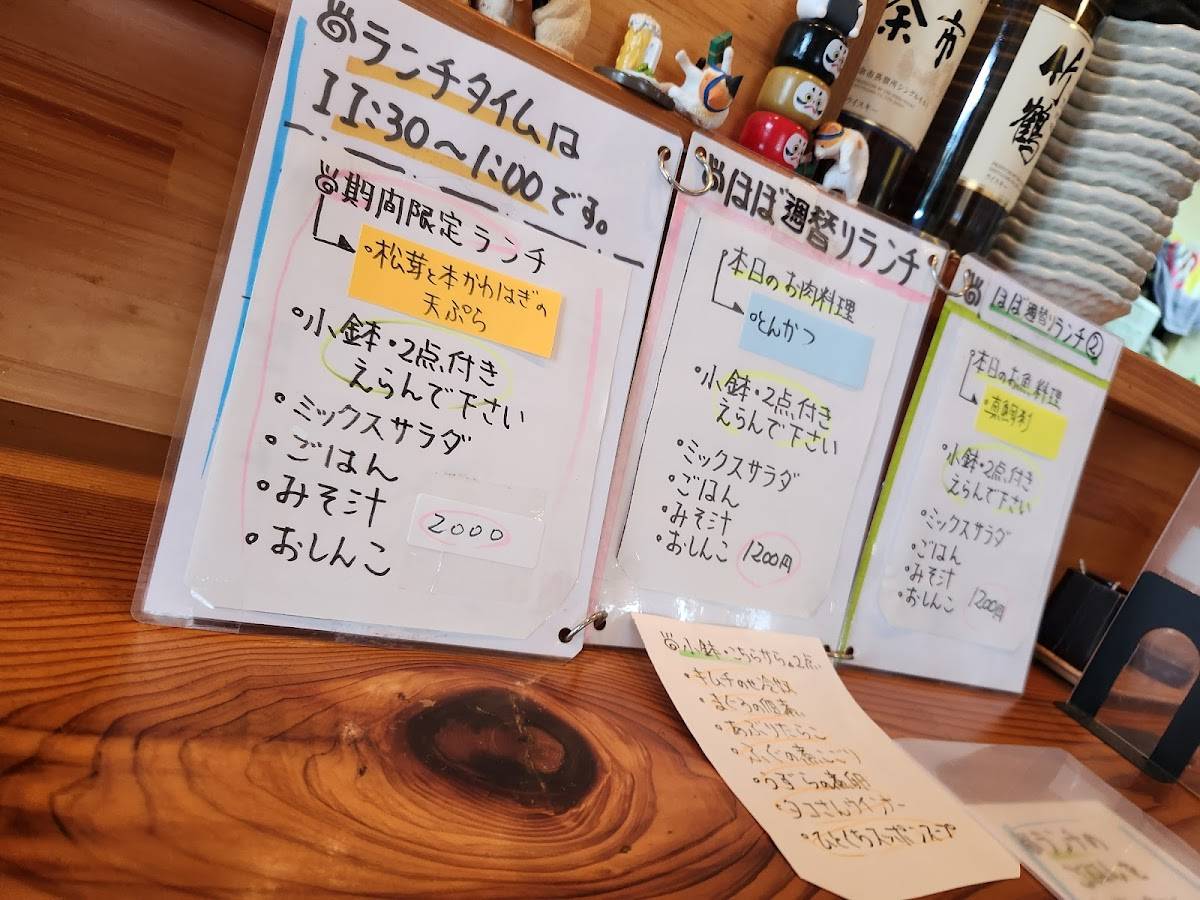 ランチタイムは
11:30〜1:00です。
期間限定ランチ
・松茸と本かわはぎの
天ぷら
・小鉢・2点付き
えらんで下さい
・ミックスサラダ
・ごはん
・みそ汁
・おしんこ
2000
ほぼ週替りランチ
本日のお肉料理
・とんかつ
・小鉢・2点付き
えらんで下さい
・ミックスサラダ
・ごはん
・みそ汁
・おしんこ 1200円
ほぼ週替りランチ②
・本日のお魚料理
・小鉢・2点付き
えらんで下さい
・ミックスサラダ
・ごはん
・みそ汁
・おしんこ 1200円
小鉢・こちらから2点
・キムチのせ冷奴
・まぐろの
・あぶりたらこ
・ふぐの煮こごり
・うずらの
・タコさんウインナー
・ひとくちスッポンスープ
余市
竹鶴